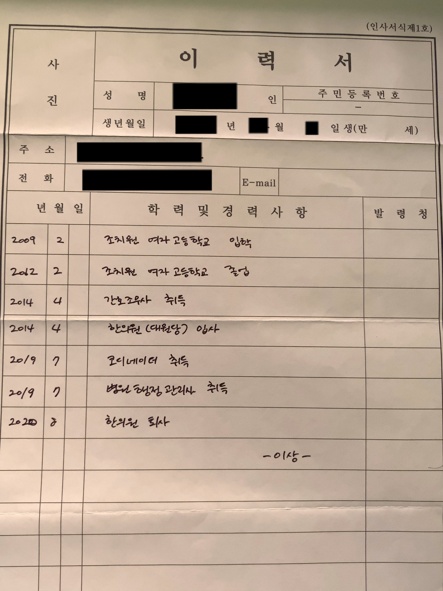 (인사서식제1호)
사 진
이 력 서
성 명 인 주 민 등 록 번 호
－
생년월일 년 월 일생(만 세)
주 소
전 화 E-mail
년 월 일 학 력 및 경 력 사 항 발 령 청
2009 2 조치원 여자 고등학교 입학
2012 2 조치원 여자 고등학교 졸업
2014 4 간호조무사 취득
2014 4 한의원 (대원당) 입사
2019 7 코디네이터 취득
2019 7 병원 행정 관리사 취득
2020 한의원 퇴사
- 이상 -